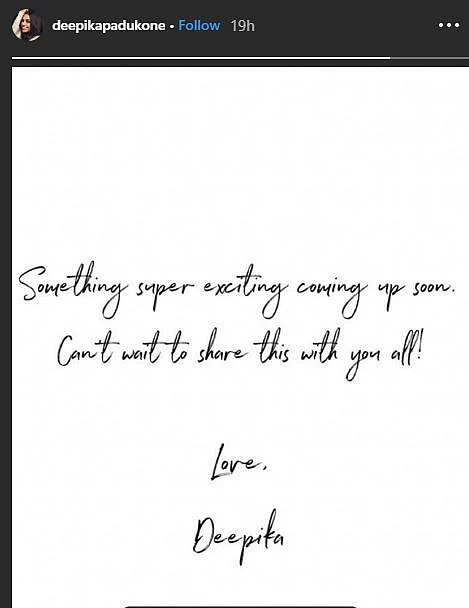 deepikapadukone • Follow 19h
Something super exciting coming up soon.
Can't wait to share this with you all!
Love,
Deepika